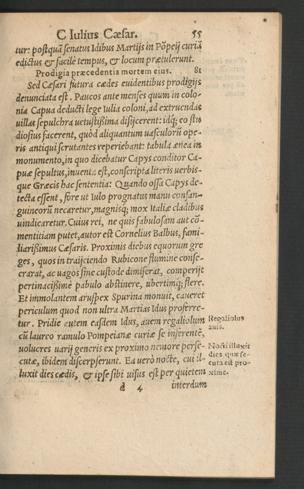 C Iulius Cæsar. 55
tur: postquã senatus Idibus Martijs in Põpeij curiã
edictus & facilè tempus, & locum prætulerunt.
Prodigia præcedentia mortem eius. 81
Sed Cæsari futura cædes euidentibus prodigijs
denunciata est. Paucos ante menses quum in colo-
nia Capua deducti lege Iulia coloni, ad extruendas
uillas sepulchra uetustissima disijcerent: idq; eo stu
diosius facerent, quòd aliquantum uasculorũ ope-
ris antiqui scrutantes reperiebant: tabula ænea in
monumento, in quo dicebatur Capys conditor Ca-
puæ sepultus, inuenta est, conscripta literis uerbis-
que Græcis hac sententia: Quando ossa Capys de-
tecta essent, fore ut Iulo prognatus manu consan-
guineorũ necaretur, magnisq; mox Italiæ cladibus
uindicaretur. Cuius rei, ne quis fabulosam aut cõ-
mentitiam putet, autor est Cornelius Balbus, fami-
liarißimus Cæsaris. Proximis diebus equorum gre
ges, quos in traijciendo Rubicone flumine conse-
crarat, ac uagos sine custode dimiserat, comperijt
pertinacißimè pabulo abstinere, ubertimq; flere.
Et immolantem aruspex Spurina monuit, caueret
periculum quod non ultra Martias Idus proferre-
tur. Pridie autem easdem Idus, auem regaliolum
cũ laureo ramulo Pompeianæ curiæ se inferentẽ,
uolucres uarij generis ex proximo nemore perse-
cutæ, ibidem discerpserunt. Ea uerò nocte, cui il-
luxit dies cædis, & ipse sibi uisus est per quietem
d 4 interdum
Regaliolus
auis.
Nocti illuxit
dies quæ se-
cuta est pro-
xime.